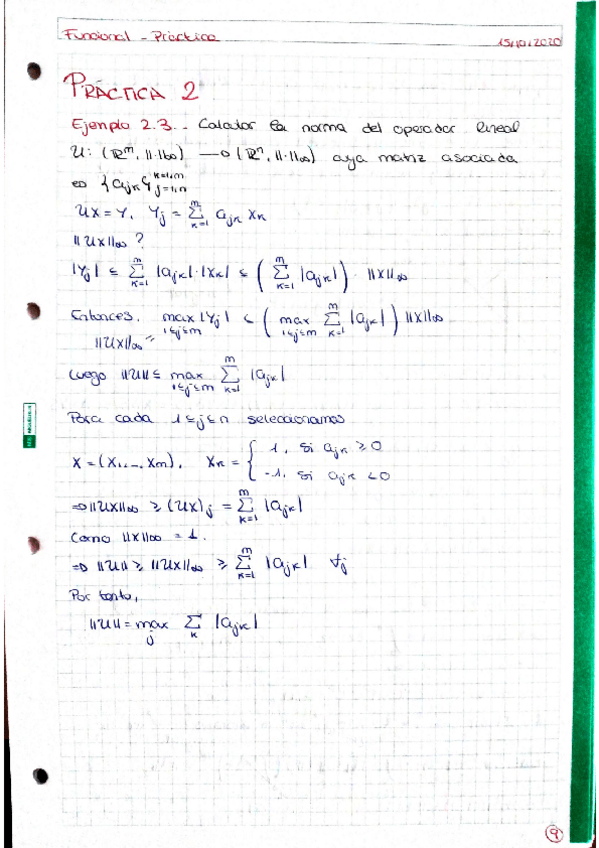 Funcional - Práctica 15/10/2020
PRÁCTICA 2
Ejemplo 2.3.- Calcular la norma del operador lineal
U: (ℝᵐ, ||·||∞) → (ℝⁿ, ||·||∞) cuya matriz asociada
es {a_jk}_{j=1,n}^{k=1,m}
UX = Y, Y_j = Σ_{k=1}^{m} a_jk X_k
||UX||∞ ?
|Y_j| ≤ Σ_{k=1}^{m} |a_jk|·|X_k| ≤ ( Σ_{k=1}^{m} |a_jk| ) · ||X||∞
Entonces, max_{1≤j≤m} |Y_j| ≤ ( max_{1≤j≤m} Σ_{k=1}^{m} |a_jk| ) ||X||∞
||UX||∞ =
Luego ||U|| ≤ max_{1≤j≤m} Σ_{k=1}^{m} |a_jk|
Para cada 1≤j≤n seleccionamos
X = (X₁,..., X_m), X_k = { 1, si a_jk ≥ 0
-1, si a_jk < 0
⇒ ||UX||∞ ≥ (UX)_j = Σ_{k=1}^{m} |a_jk|
Como ||X||∞ = 1.
⇒ ||U|| ≥ ||UX||∞ ≥ Σ_{k=1}^{m} |a_jk| ∀j
Por tanto,
||U|| = max_j Σ_k |a_jk|
9